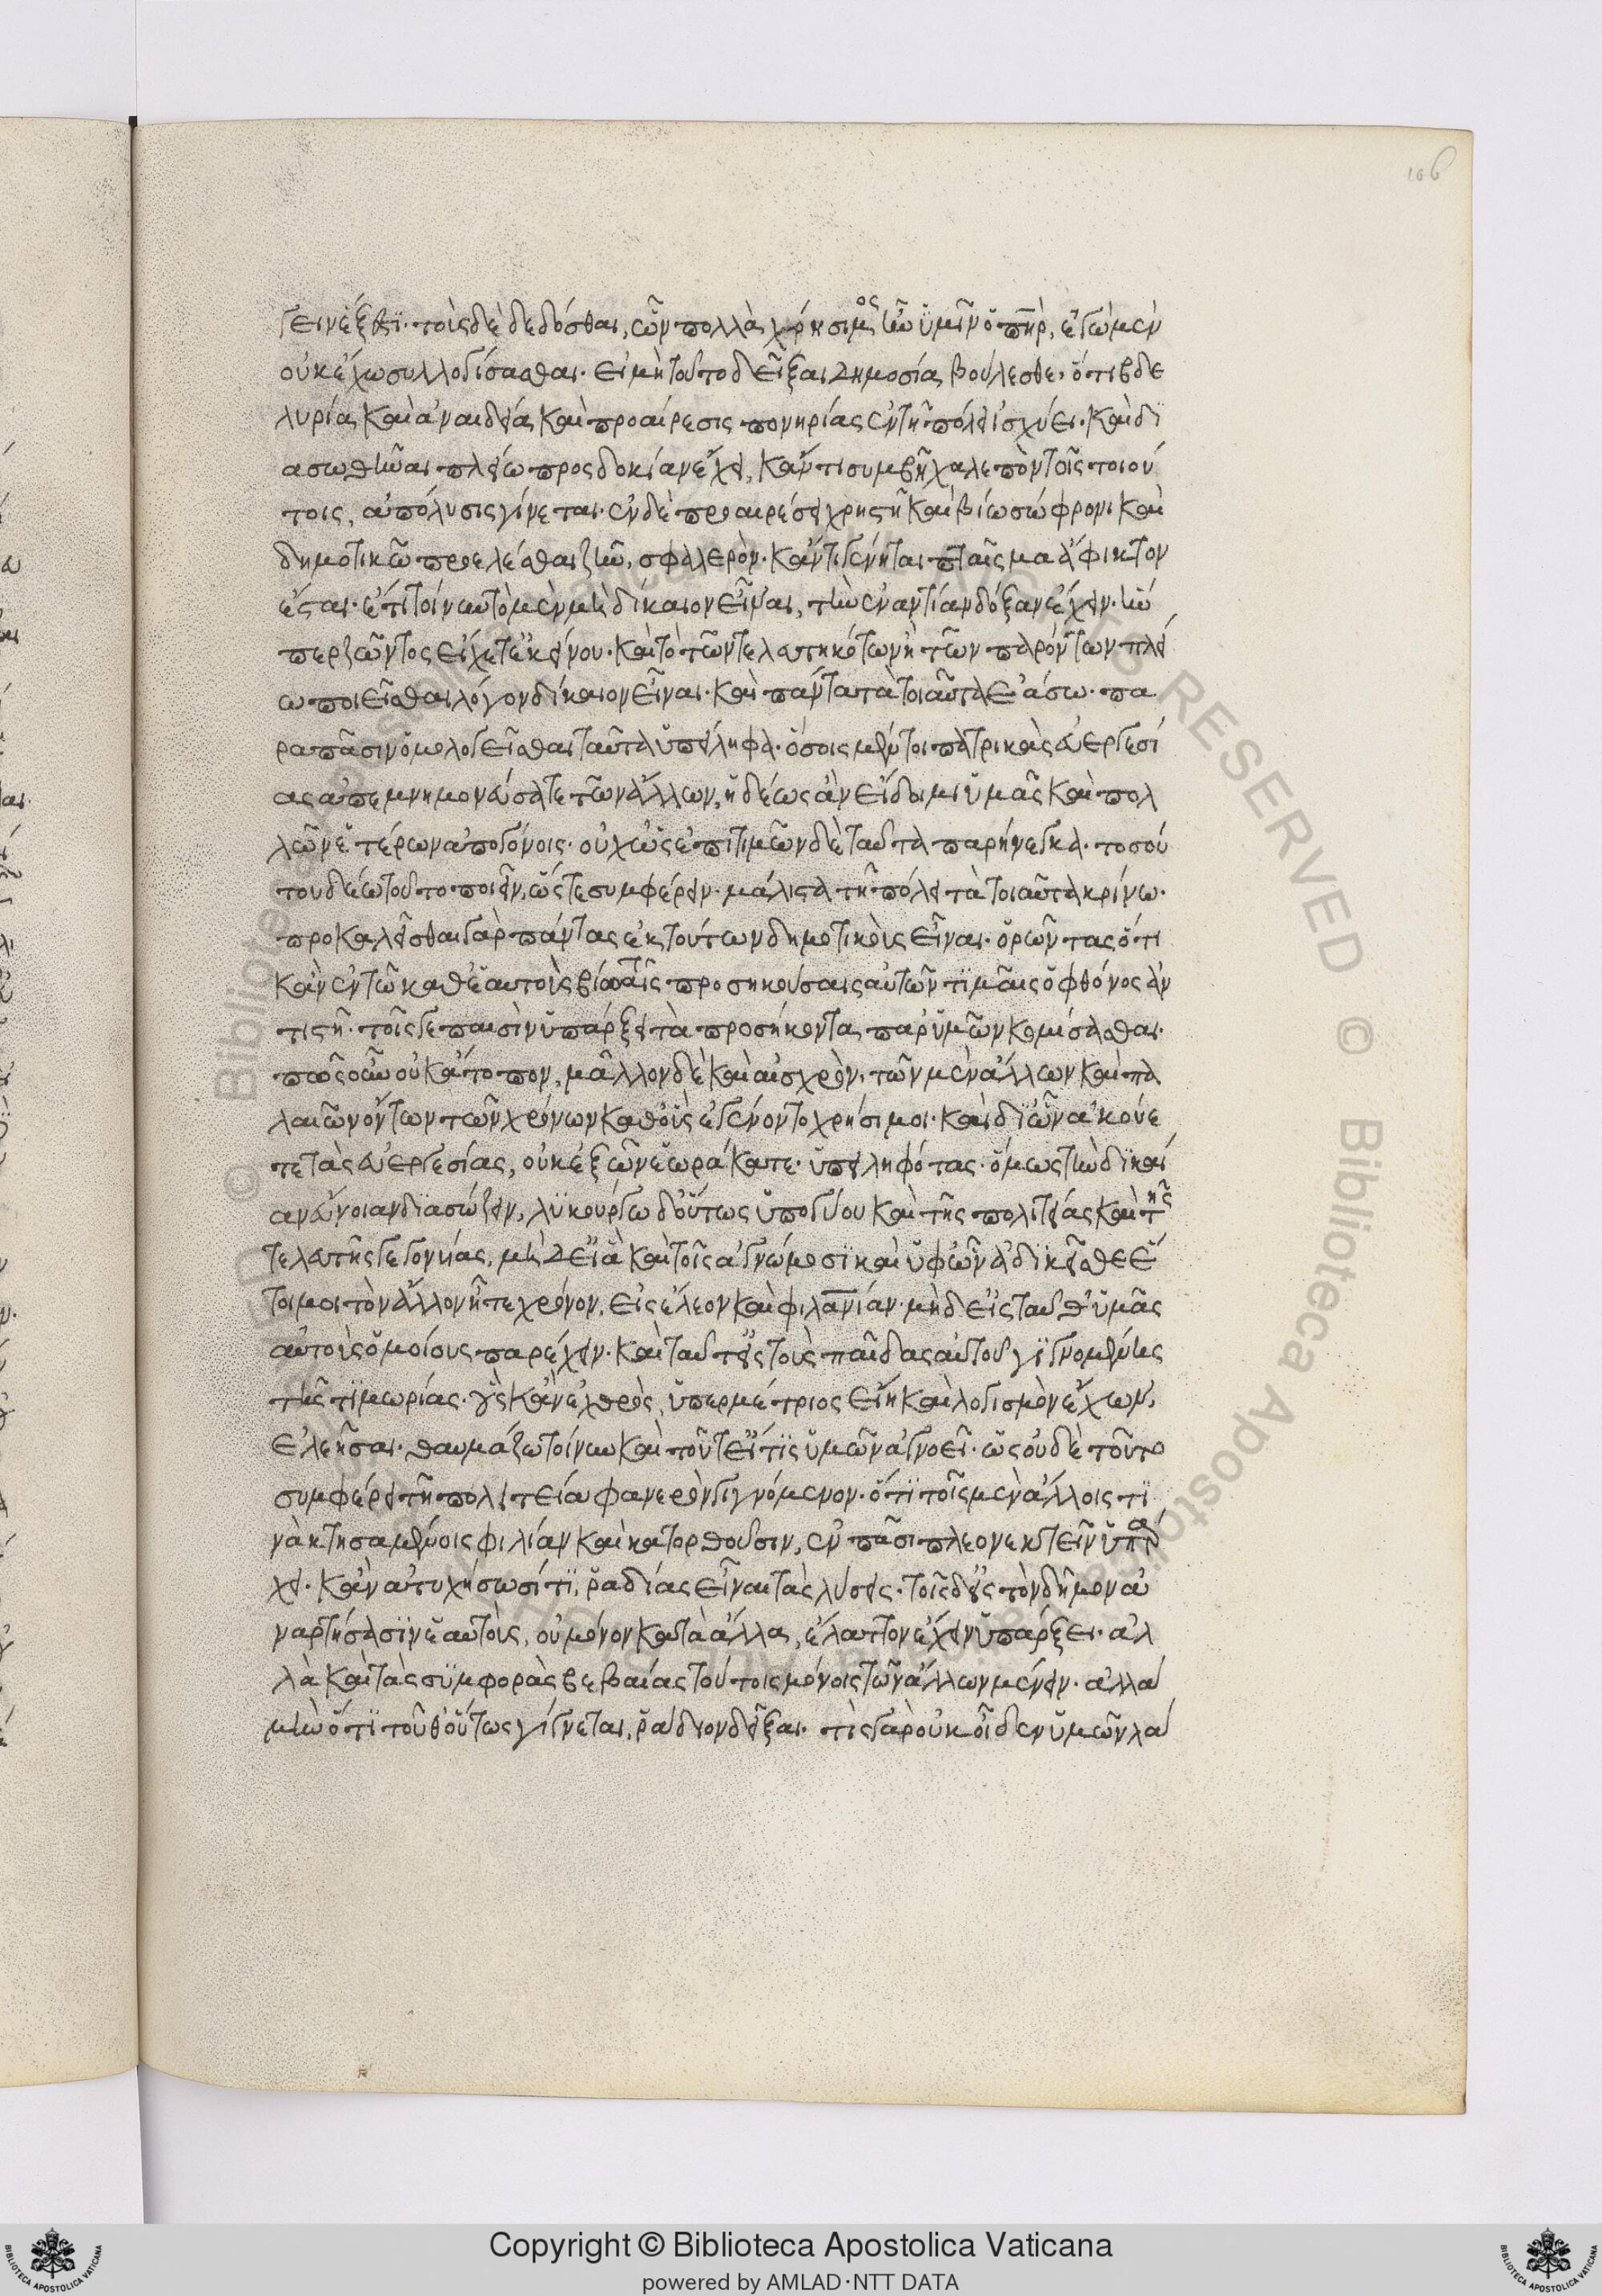 γειν ἐξεῖ. τοὶς δὲ δεδόσθαι, ὧν πολλὰ χρήσιμος ἦν ὑμῖν ὁ πηρ, ἐγὼ μὲν
οὐκ ἔχω συλλογίσασθαι. εἰ μὴ τοῦτο δεῖξαι δημοσία βούλεσθε, ὅτι βδε
λυρία καὶ ἀναιδεία καὶ προαίρεσις πονηρίας ἐν τῆ πόλει ἰσχύει. καὶ δι
ασωθῆναι πλείω προσδοκίαν ἔχει, κἄν τι συμβῆ χαλεπὸν τοῖς τοιού
τοις, ἀπόλυσις γίνεται. ἐν δὲ προαιρέσει χρηστῆ καὶ βίω σώφρονι καὶ
δημοτικῶ προελέσθαι ζῆν, σφαλερὸν. κἄν τι γένηται πταῖσμα ἄφικτον
ἔσται. ἔτι τοίνυν τὸ μὲν μὴ δίκαιον εἶναι, τὴν ἐναντίαν δόξαν ἔχειν. ἣν
περ ζῶντος εἴχετε ἐκείνου. καὶ τὸ τῶν τελευτηκότων ἢ τῶν παρόντων πλεί
ω ποιεῖσθαι λόγον δίκαιον εἶναι. καὶ πάντα τὰ τοιαῦτα ἐάσω. πα
ρα πᾶσιν ὁμολογεῖσθαι ταῦτα ὑπείληφα. ὅσοις μέντοι πατρικὰς εὐεργεσί
ας ἀπεμνημονεύσατε τῶν ἄλλων, ἡδέως ἂν εἴδοιμι ὑμᾶς καὶ πολ
λῶν ἑτέρων ἀπογόνοις. οὐχ ὡς ἐπιτιμῶν δὲ ταῦτα παρήνεγκα. τοσού
του δέω τοῦτο ποιεῖν, ὥστε συμφέρειν. μάλιστα τῆ πόλει τὰ τοιαῦτα κρίνω.
προκαλεῖσθαι γὰρ πάντας ἐκ τούτων δημοτικοὺς εἶναι. ὁρῶντας ὅτι
κἂν ἐν τῶ καθ' ἑαυτοὺς βίω ταῖς προσηκούσαις αὐτῶν τιμαῖς ὁ φθόνος ἀν
τιστῆ. τοῖς γε παισὶν ὑπάρξει τὰ προσήκοντα παρ' ὑμῶν κομίσασθαι.
πῶς οὖν οὐκ ἄτοπον, μᾶλλον δὲ καὶ αἰσχρὸν. τῶν μὲν ἄλλων καὶ πα
λαιῶν ὄντων τῶν χρόνων καθ' οὓς ἐγένοντο χρήσιμοι. καὶ δι' ὧν ἀκούε
τε τὰς εὐεργεσίας, οὐκ ἐξ ὧν ἑωράκατε. ὑπειληφότας. ὅμως τὴν δικαί
αν εὔνοιαν διασώζειν, λυκούργω δ' οὕτως ὑπογύου καὶ τῆς πολιτείας καὶ τῆς
τελευτῆς γεγονυίας, μὴ δ' εἰ ἃ καὶ τοῖς ἀγνώμοσι καὶ ὑφ' ὧν ἀδικεῖσθε ἕ
τοιμοι τὸν ἄλλον ἦτε χρόνον, εἰς ἔλεον καὶ φιλανίαν. μὴδ' εἰς ταῦθ' ὑμᾶς
αὐτοὺς ὁμοίους παρέχειν. καὶ ταῦτ' εἰς τοὺς παῖδας αὐτοῦ γιγνομένης
τῆς τιμωρίας. οὓς κἂν ἐχθρὸς, ὑπερμέτριος εἴη καὶ λογισμὸν ἔχων,
ἐλεῆσαι. θαυμάζω τοίνυν καὶ τοῦτ' εἴ τις ὑμῶν ἀγνοεῖ. ὡς οὐδὲ τοῦτο
συμφέρει τῆ πολιτεία φανερὸν γιγνόμενον. ὅτι τοῖς μὲν ἄλλοις τι
νὰ κτησαμένοις φιλίαν καὶ κατορθοῦσιν, ἐν πᾶσι πλεονεκτεῖν ὑπάρ
χει. κἂν ἀτυχήσωσί τι, ῥαδίας εἶναι τὰς λύσεις. τοῖς δ' εἰς τὸν δῆμον ἀ
ναρτήσασιν ἑαυτοὺς, οὐ μόνον κατὰ ἄλλα, ἔλαττον ἔχειν ὑπάρξει. ἀλ
λὰ καὶ τὰς συμφορὰς βεβαίας τούτοις μόνοις τῶν ἄλλων μένειν. ἀλλὰ
μὴν ὅτι τοῦθ' οὕτως γίγνεται, ῥάδιον δεῖξαι. τὶς γὰρ οὐκ οἶδεν ὑμῶν λά
106
Copyright © Biblioteca Apostolica Vaticana
powered by AMLAD·NTT DATA